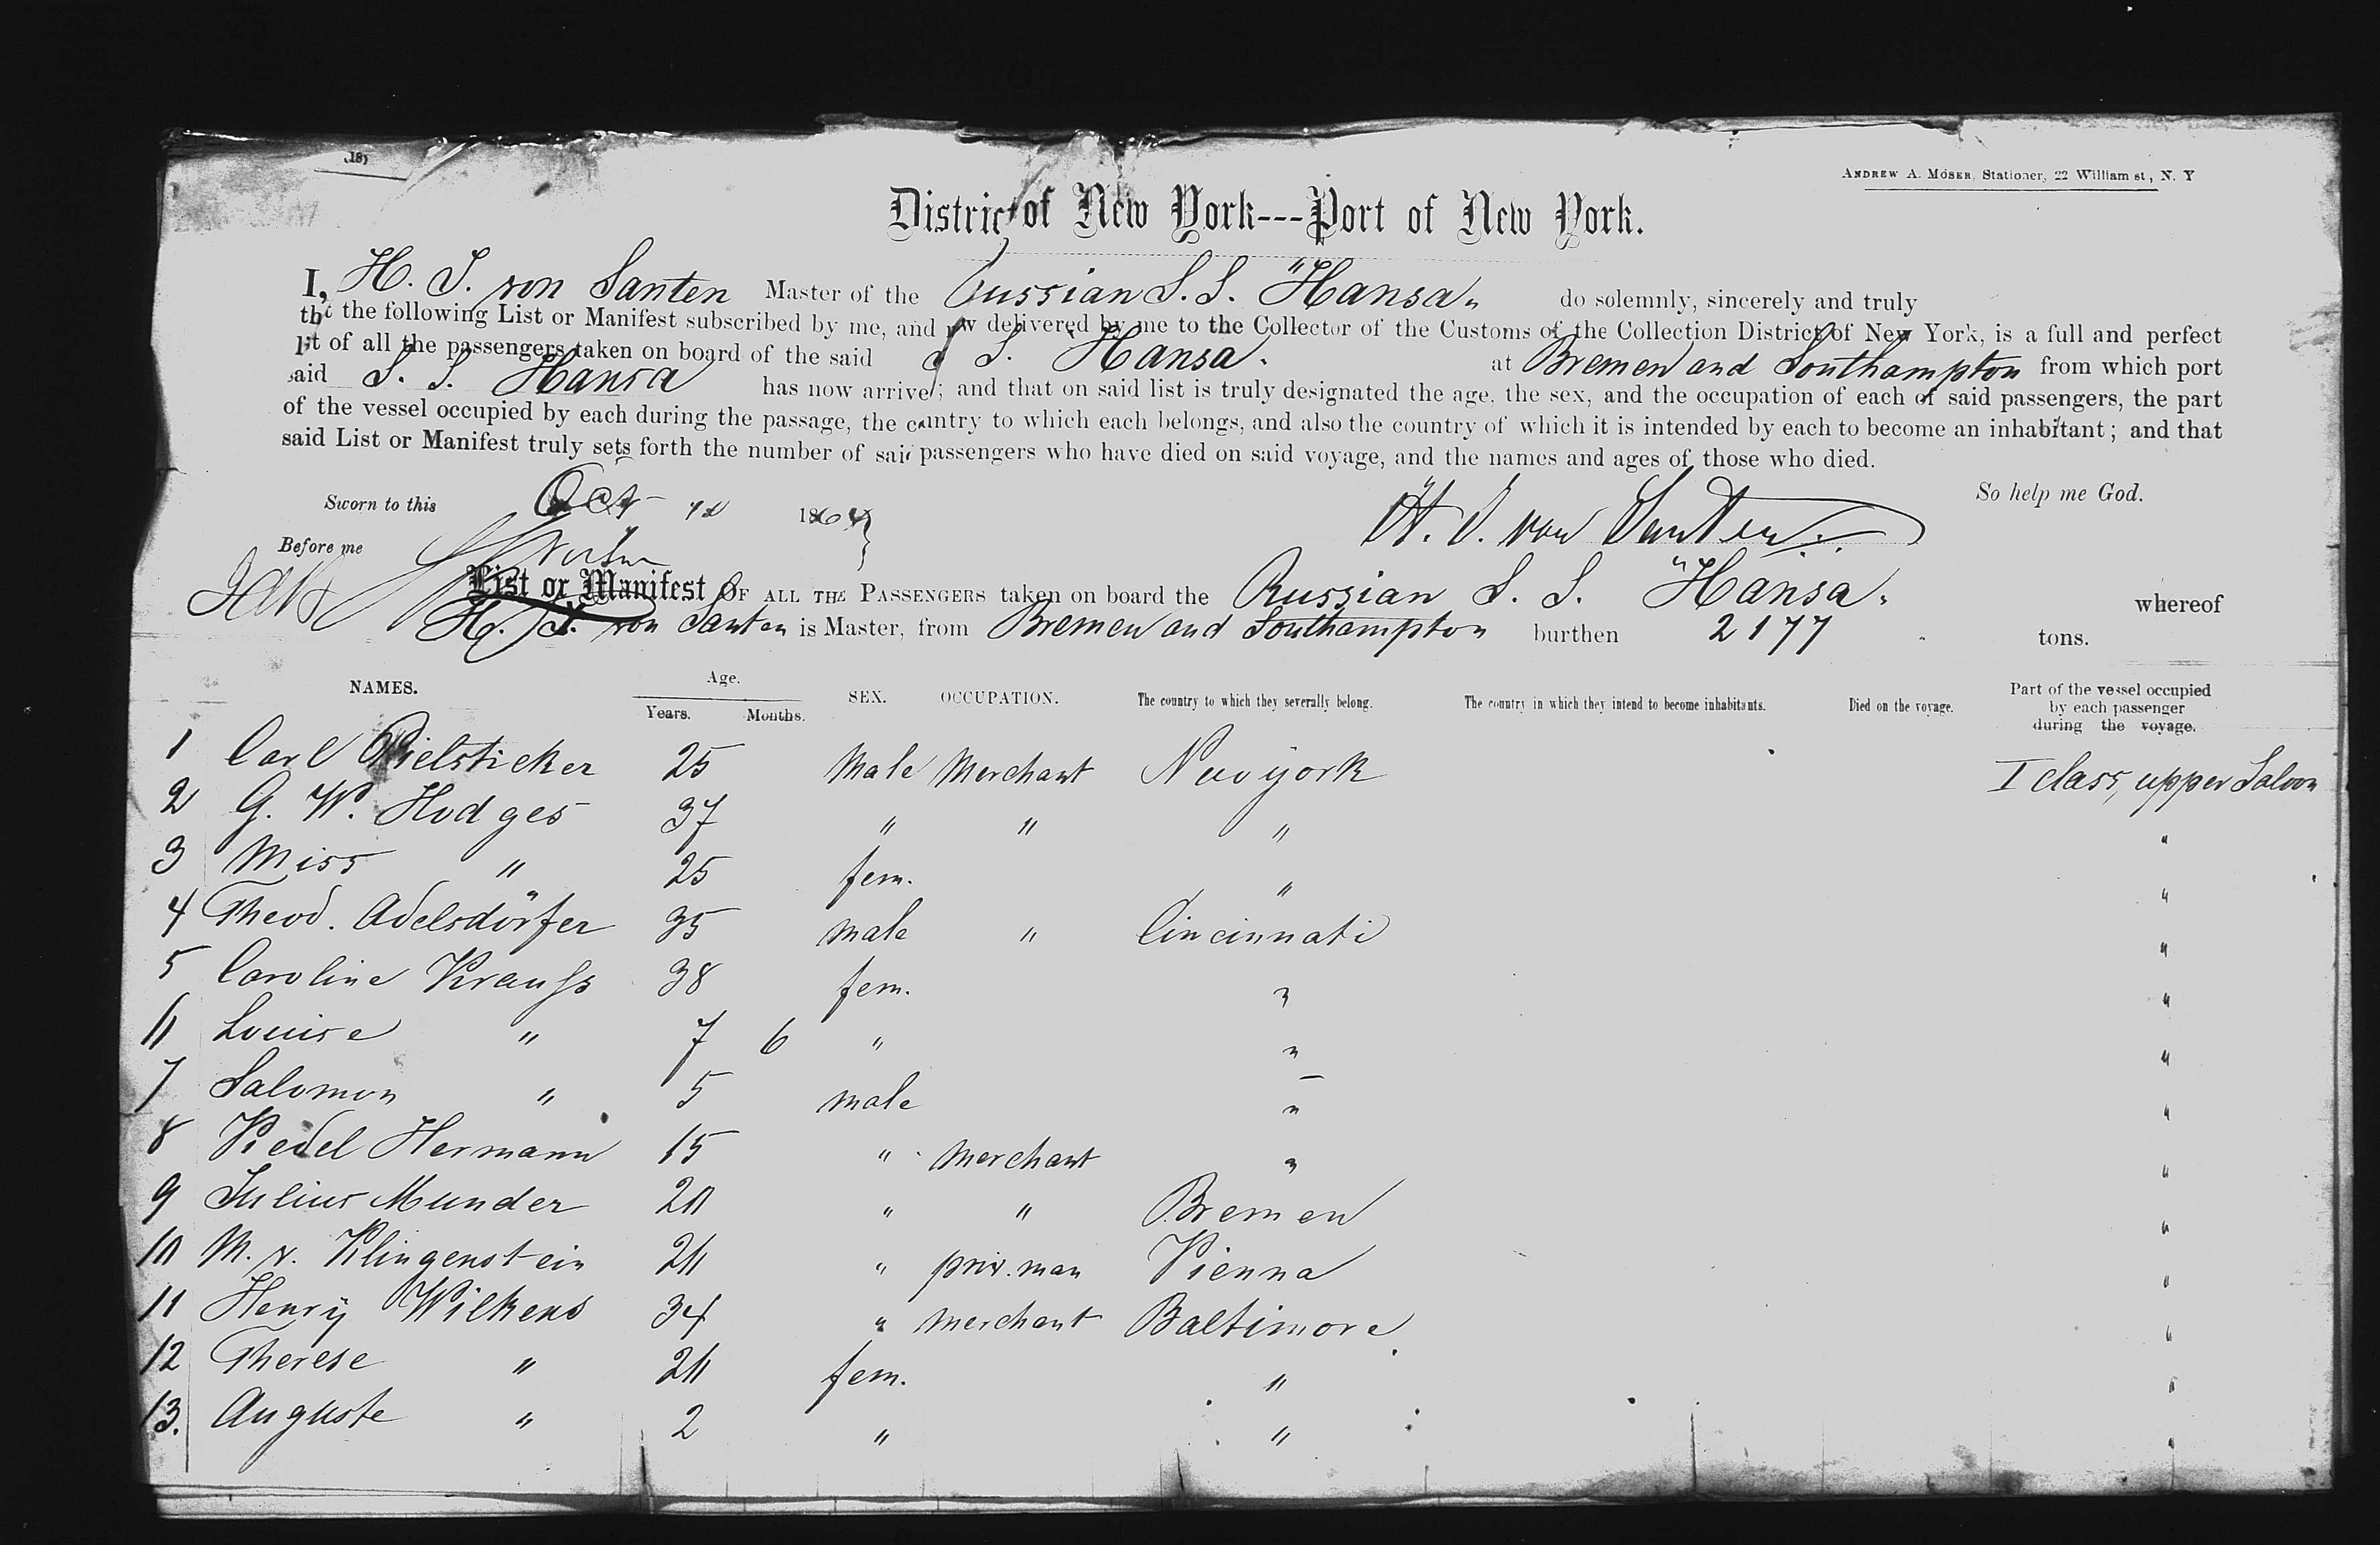 (18)
ANDREW A. MOSER, Stationer, 22 William st, N. Y
District of New York---Port of New York.
I, H. J. von Santen Master of the Russian S. S. "Hansa" do solemnly, sincerely and truly
that the following List or Manifest subscribed by me, and now delivered by me to the Collector of the Customs of the Collection District of New York, is a full and perfect
list of all the passengers taken on board of the said S. S. Hansa. at Bremen and Southampton from which port
said S. S. Hansa has now arrived; and that on said list is truly designated the age, the sex, and the occupation of each of said passengers, the part
of the vessel occupied by each during the passage, the country to which each belongs, and also the country of which it is intended by each to become an inhabitant; and that
said List or Manifest truly sets forth the number of said passengers who have died on said voyage, and the names and ages of those who died.
So help me God.
Sworn to this Oct 186
H. J. von Santen
Before me
List or Manifest OF ALL THE PASSENGERS taken on board the Russian S. S. "Hansa" whereof
H. J. von Santen is Master, from Bremen and Southampton burthen 2177 tons.
NAMES. Age. Years. Months. SEX. OCCUPATION. The country to which they severally belong. The country in which they intend to become inhabitants. Died on the voyage. Part of the vessel occupied by each passenger during the voyage.
1 Carl Pielsticker 25 Male Merchant New york I class, upper Saloon
2 G. W. Hodges 37 " " " "
3 Miss " 25 fem. " "
4 Theod. Adelsdörfer 35 male " Cincinnati "
5 Caroline Krauss 38 fem. " "
6 Louise " 7 6 " " "
7 Salomon " 5 male " "
8 Hermann 15 " Merchant " "
9 Julius Munder 20 " " Bremen "
10 M. v. Klingenstein 26 " priv. man Vienna "
11 Henry Wilkens 34 " Merchant Baltimore "
12 Therese " 26 fem. " "
13. Auguste " 2 " " "